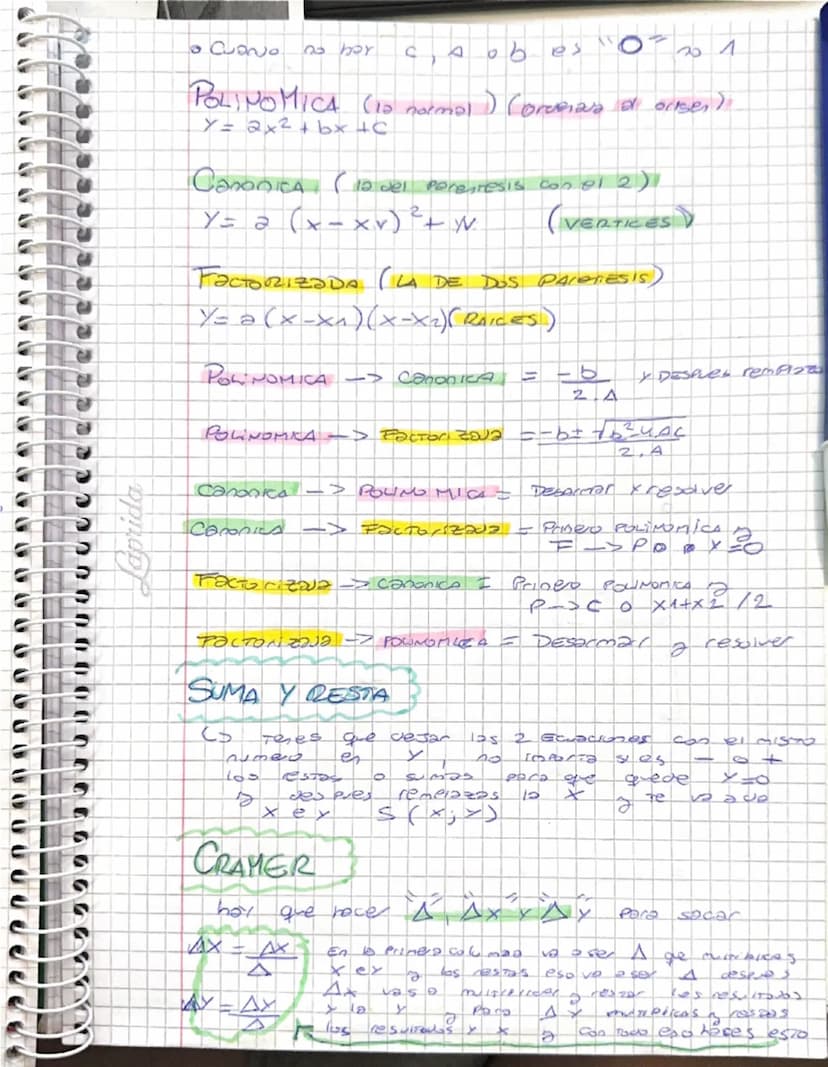 • Cuando no hay c, a o b es "0" no 1
POLINOMICA (la normal) (ordenada al origen)
Y= ax² + bx + c
Canonica (la del parentesis con el 2)
Y= a (x - xv)² + yv (VERTICES)
FACTORIZADA (LA DE DOS PARENTESIS)
Y= a (x-x1)(x-x2) (RAICES)
POLINOMICA -> canonica = -b / 2.A y DESPUES remplazo
POLINOMICA -> FACTORIZADA = -b ± √b²-4AC / 2.A
canonica -> POLINOMICA = Desarmar y resolver
canonica -> FACTORIZADA = Primero polinomica y
Laprida
Y=0
FACTORIZADA -> canonica = Primero Polinomica y
P->C o x1+x2 /2
FACTORIZADA -> POLINOMICA = Desarmar y resolver
SUMA Y RESTA
Tenes que dejar las 2 ecuaciones con el mismo
numero en Y, no importa si es - o +
las restas o sumas para que quede Y=0
y despues remplazas la X y te va a da
X e Y S(x;y)
CRAMER
hay que hacer "Δ, Δx y Δy" para sacar
ΔX = ΔX / Δ En la primera columna va a ser Δ que multiplicas
x e y y los restas eso va a ser Δ despues
Δx vas a multiplicar y restar los resultados
ΔY = ΔY / Δ y la y y para ΔY multiplicas y restas
los resultados y x y con todo eso haces esto